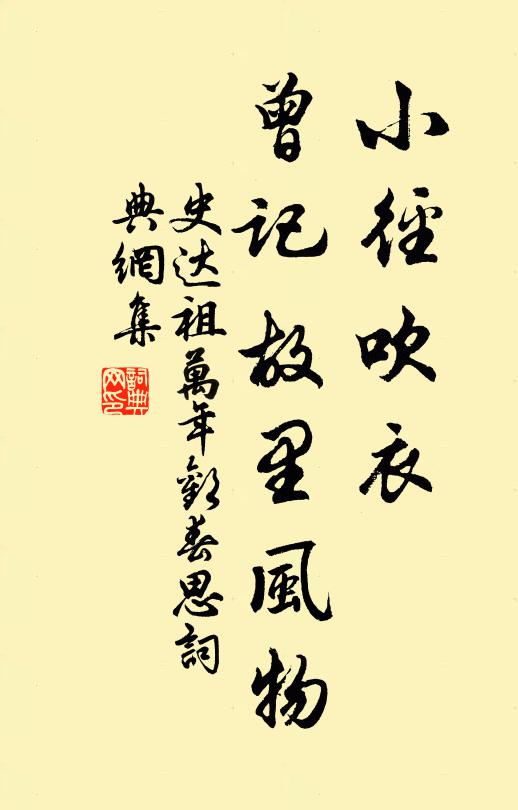 小徑吹衣
曾記故里風物
史达祖萬年歡春思詞
典網集
詞典网印